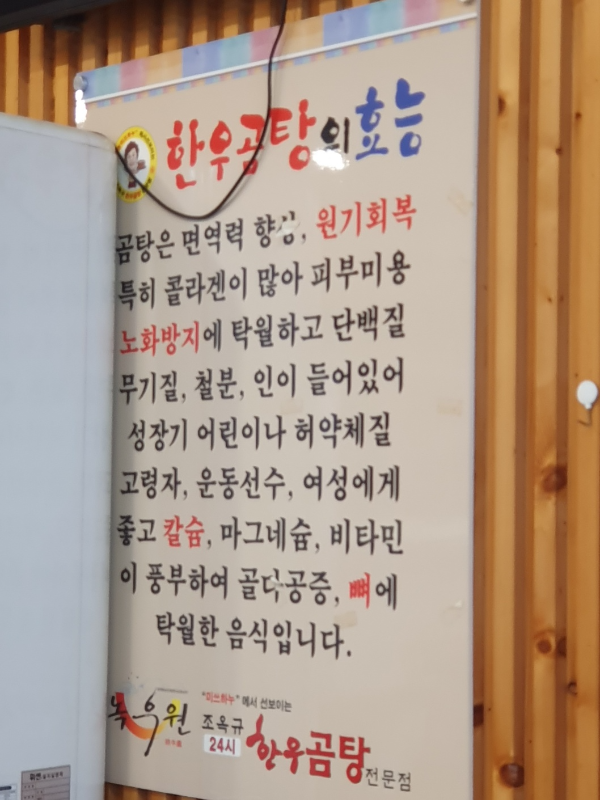 한우곰탕의효능
곰탕은 면역력 향상, 원기회복
특히 콜라겐이 많아 피부미용
노화방지에 탁월하고 단백질
무기질, 철분, 인이 들어있어
성장기 어린이나 허약체질
고령자, 운동선수, 여성에게
좋고 칼슘, 마그네슘, 비타민
이 풍부하여 골다공증, 뼈에
탁월한 음식입니다.
녹우원
"미쓰하누" 에서 선보이는
조옥규
24시
한우곰탕
전문점